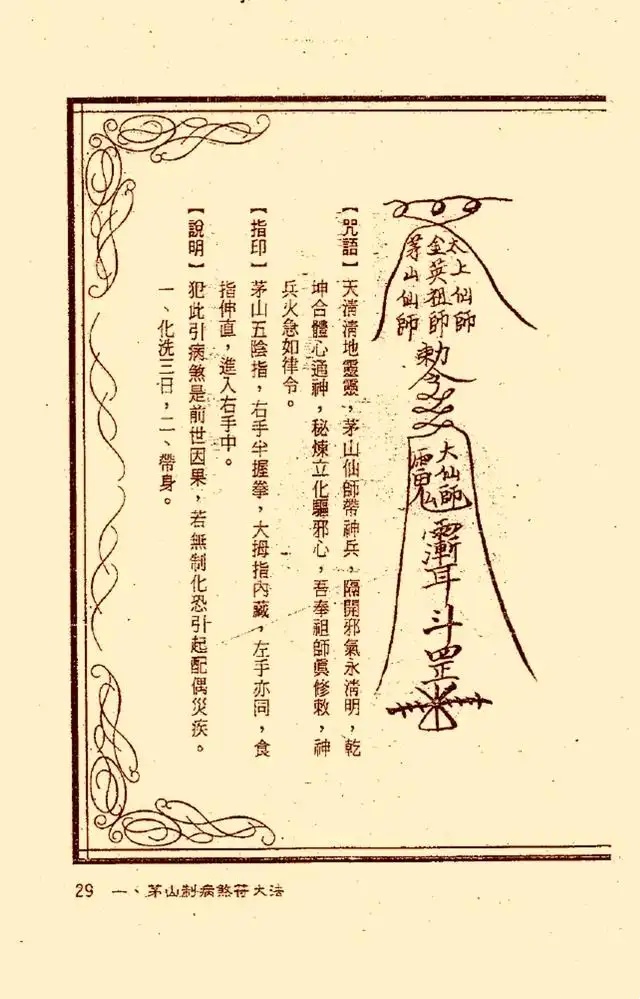 太上仙師
金英祖師
茅山仙師
勅令
大仙師
斗罡
【咒語】天淸淸地靈靈，茅山仙師帶神兵，隔開邪氣永淸明，乾
坤合體心通神，秘煉立化驅邪心，吾奉祖師眞修敕，神
兵火急如律令。
【指印】茅山五陰指，右手半握拳，大拇指內藏，左手亦同，食
指伸直，進入右手中。
【說明】犯此引病煞是前世因果，若無制化恐引起配偶災疾。
一、化洗三日，二、帶身。
29 一、茅山制病煞符大法